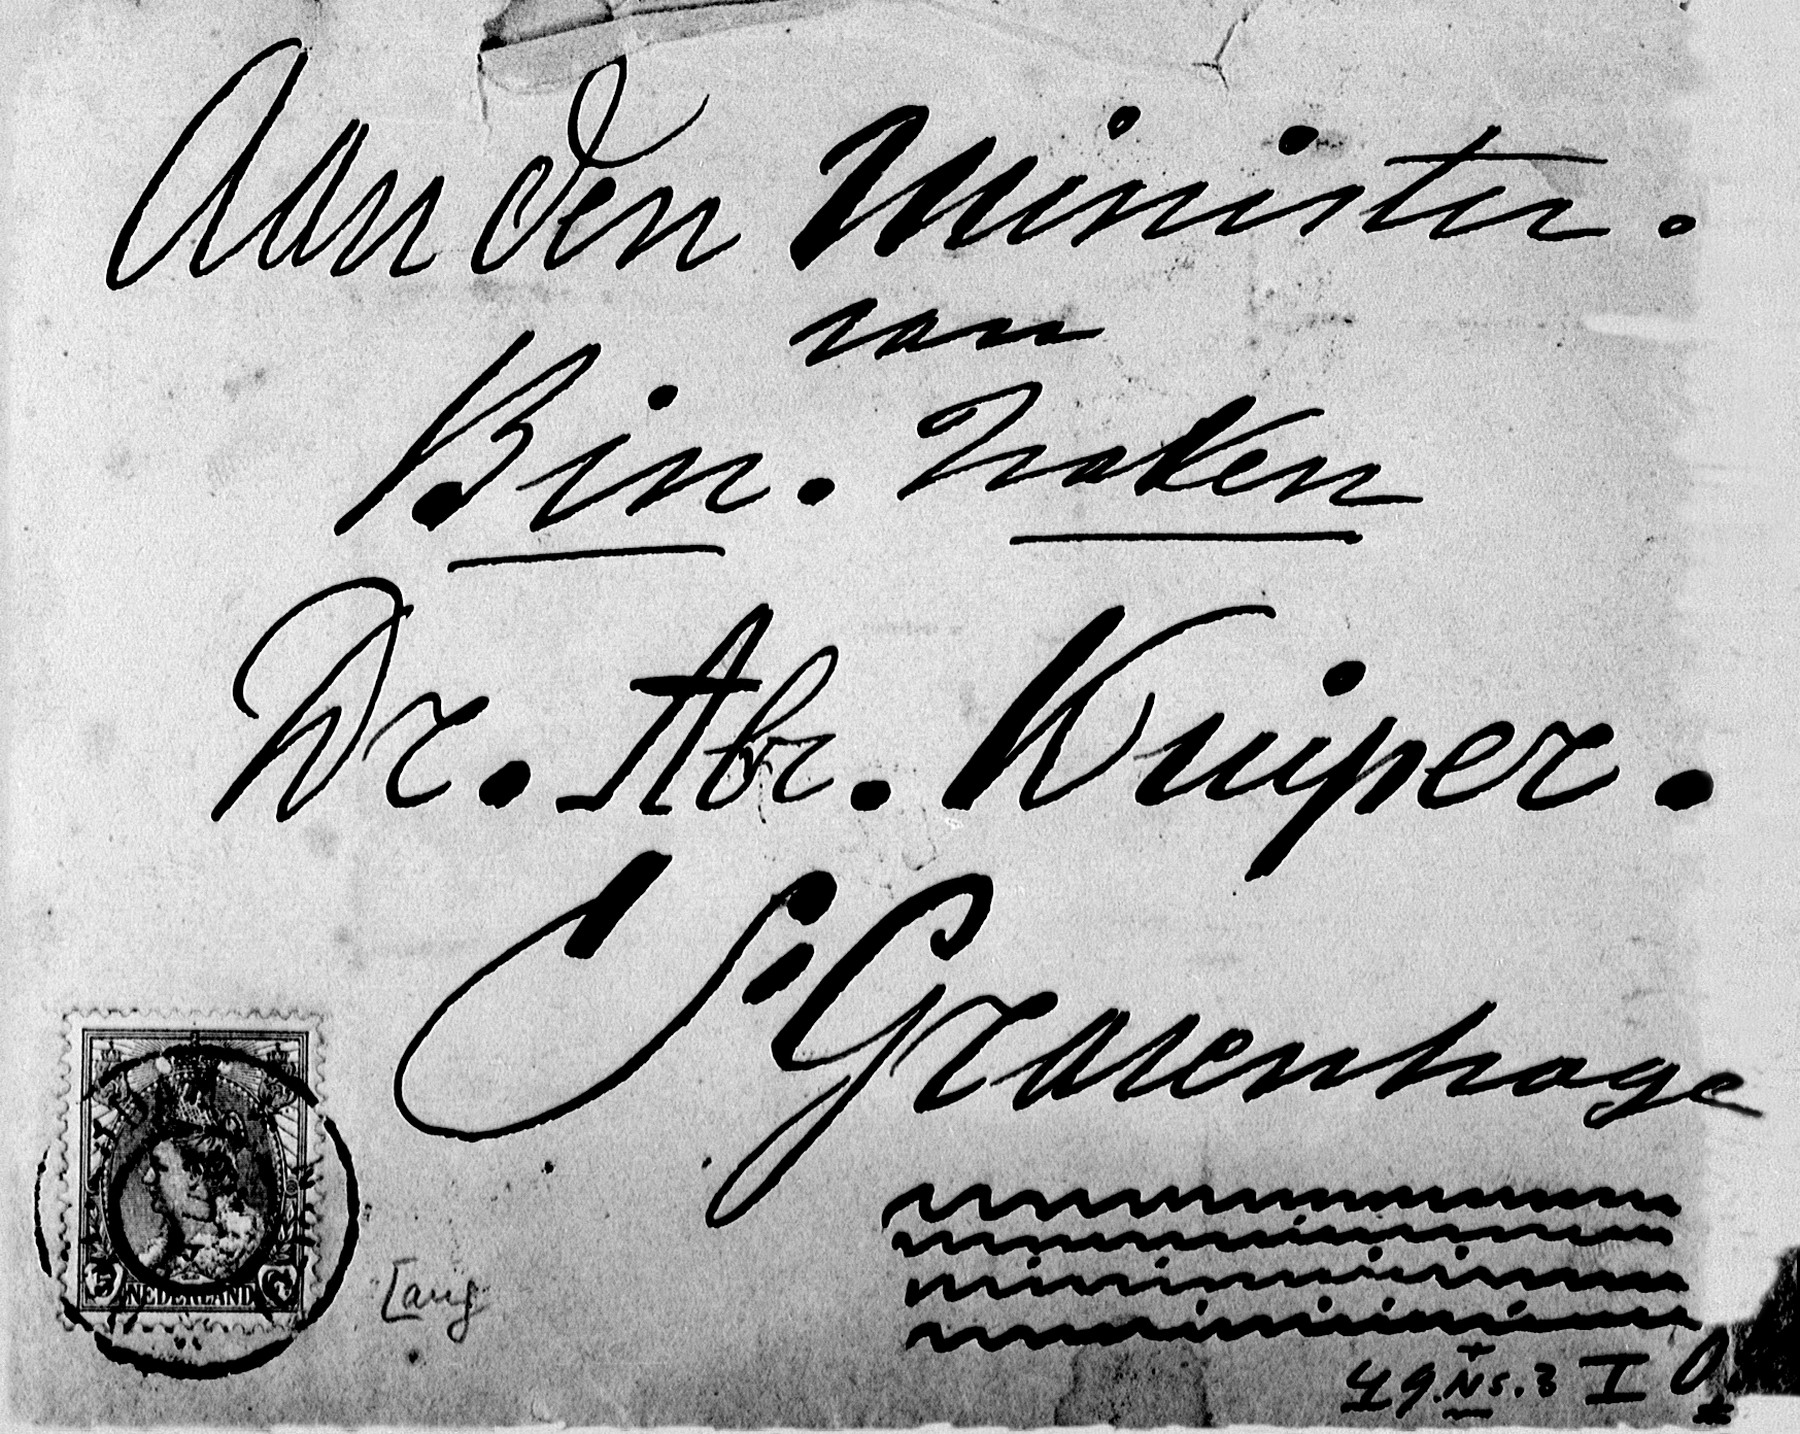 Aan den Minister.
van
Bin. Zaken
Dr. Abr. Kuiper.
S'Gravenhage
5 NEDERLAND C
Lang
49. Ns. 3 I